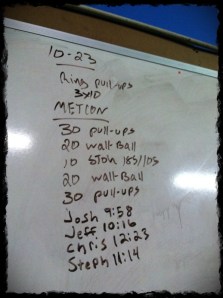 10-23
Ring pull-ups
3x10
METCON
30 pull-ups
20 wall-Ball
10 STOH 185/105
20 wall-Ball
30 pull-ups
Josh 9:58
Jeff 10:16
Chris 12:23
Steph 11:14